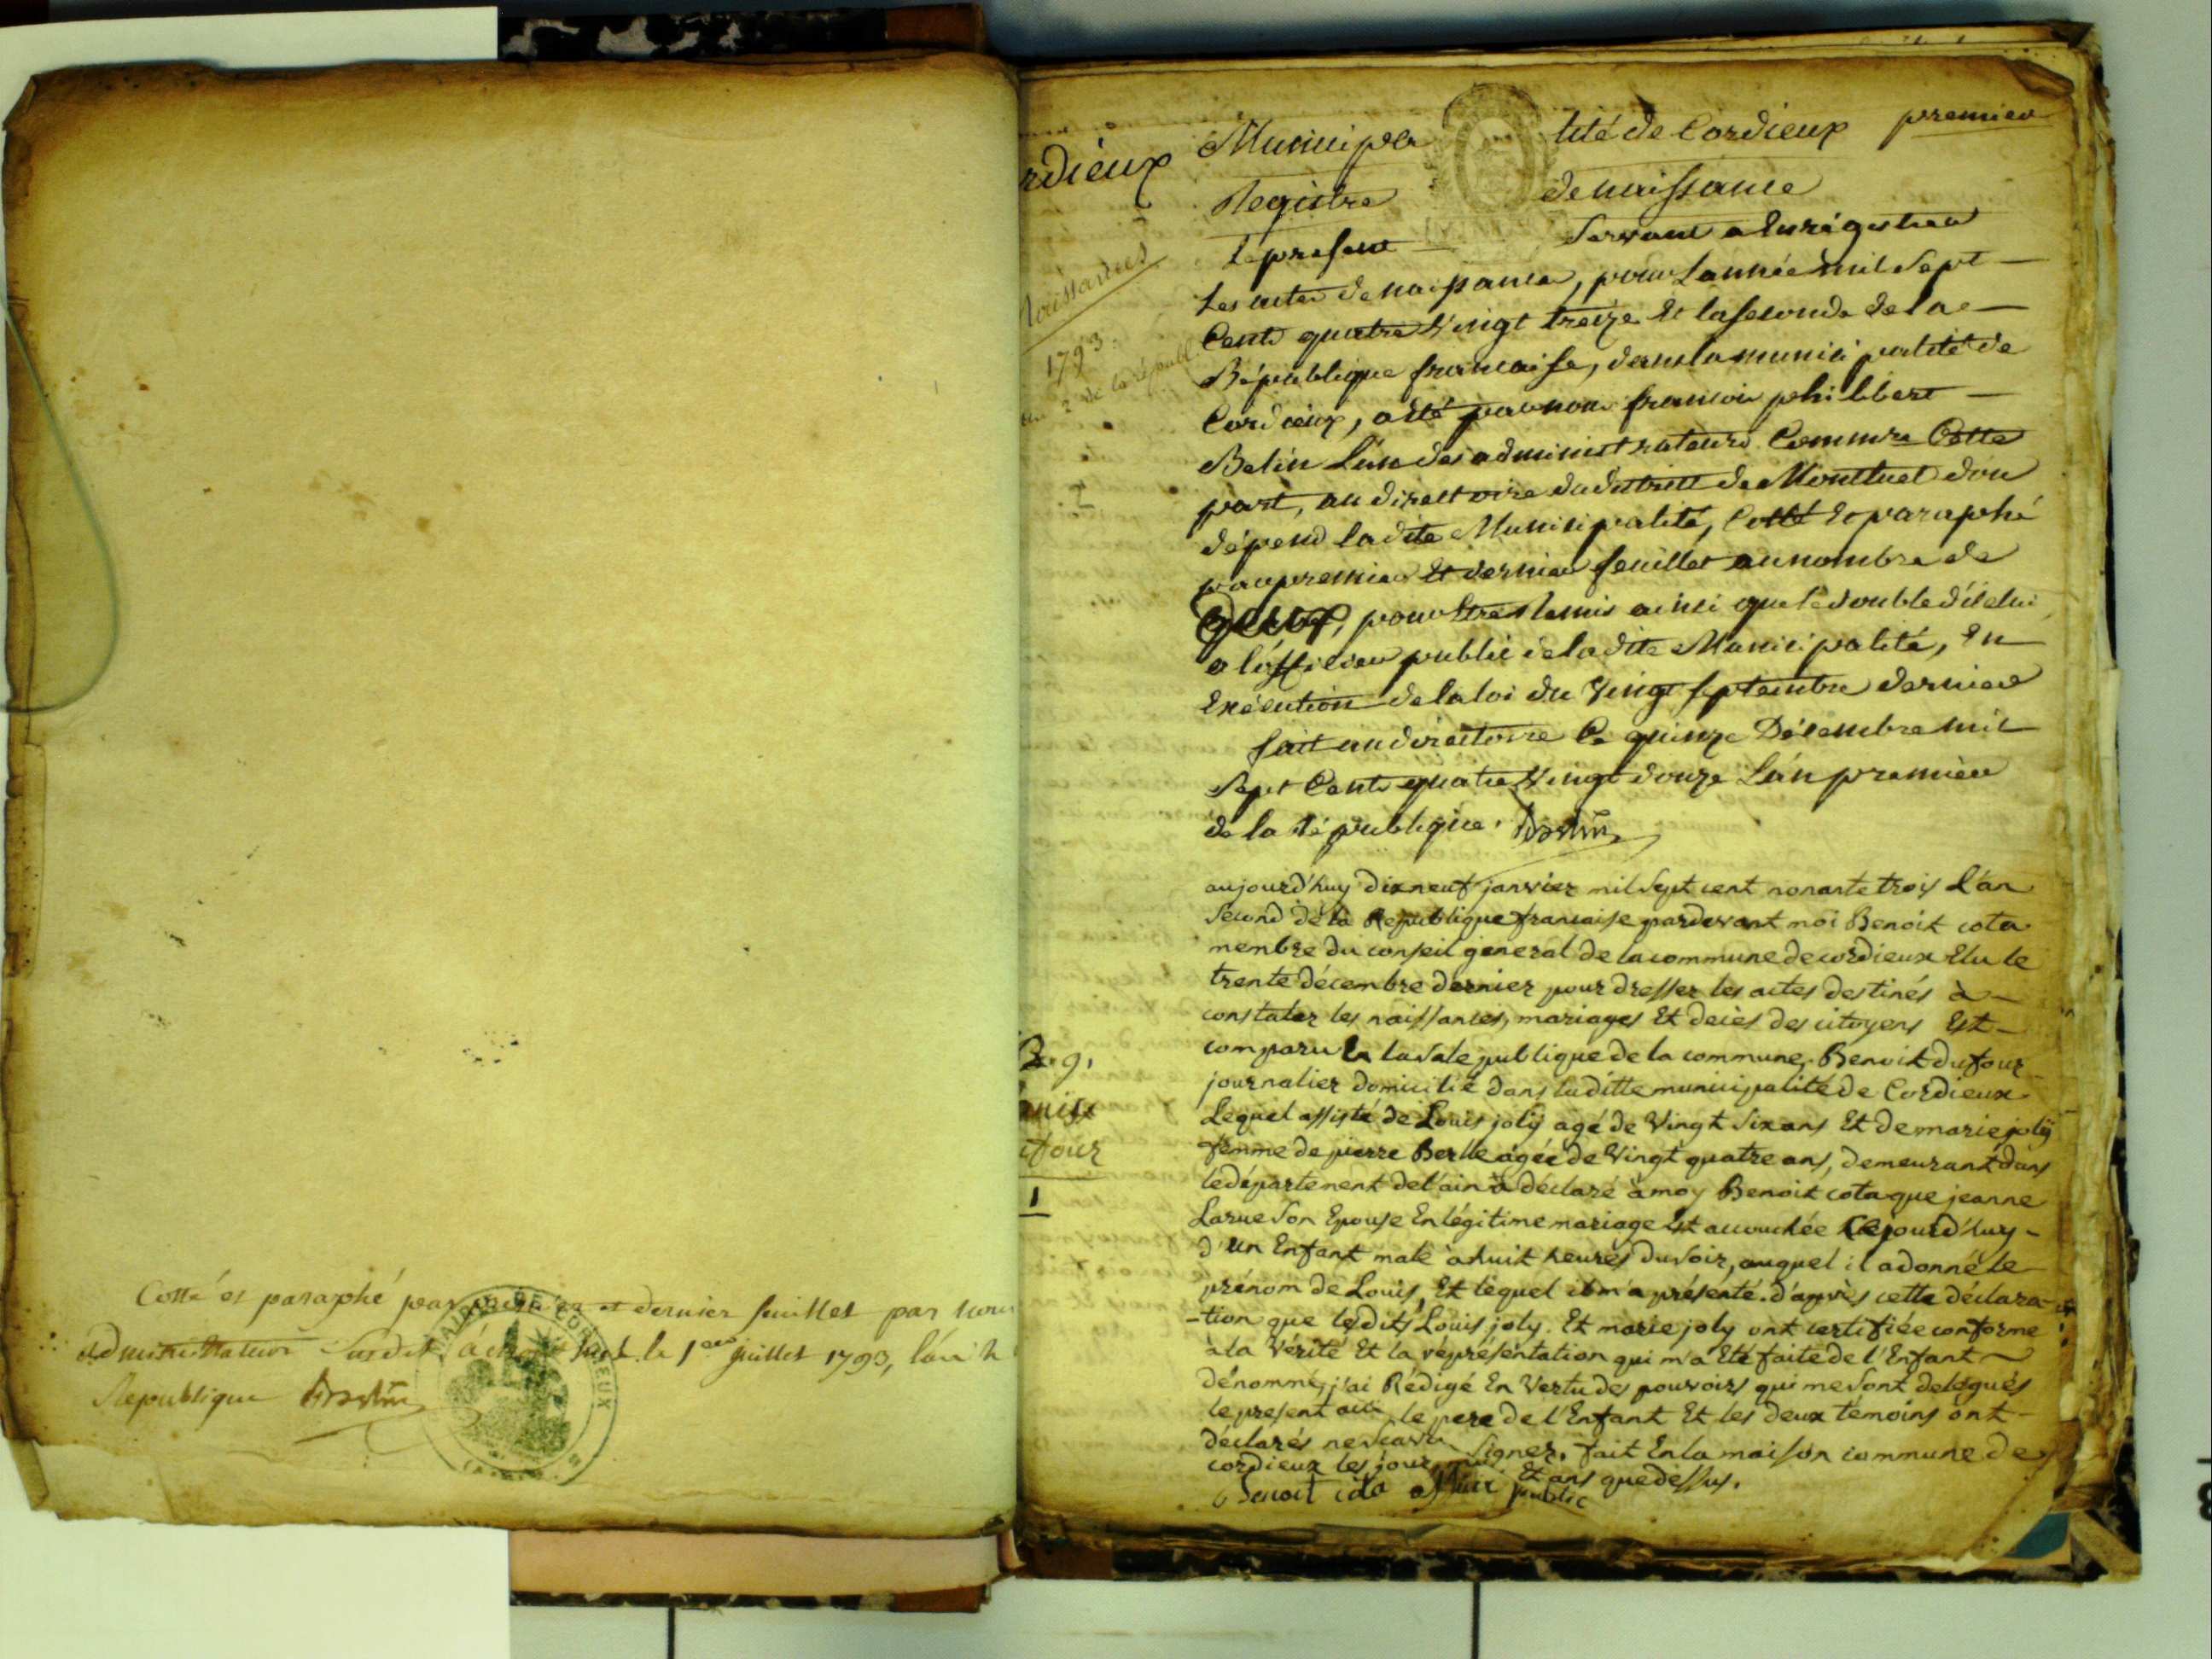 Cotté et paraphé par premier et dernier feuillet par nous
administrateur susdit le 1er juillet 1793, l'an 2
Republique Betin
MAIRIE DE CORDIEUX
rdieux
Naissances
1793
an 2 de la républ.
Municipa lité de Cordieux premier
Registre de naissance
Le present Servant a Enrégistrer
Les actes de naissance, pour L'année mil Sept
Cents quatre Vingt treize Et la seconde de la
République francaise, dans la municipalité de
Cordieux, a été par nous francois philibert
Betin L'un des administrateurs Commre Cotte
part, au directoire du district de Montluel dou
dépend la dite Municipalité, Cotté Et paraphé
par premier Et dernier feuillet au nombre de
Deux, pour Etre Remis ainsi que le double d'icelui
a l'officier public de la dite Municipalité, En
Exécution de la loi du Vingt septembre dernier
fait au directoire Ce quinze Décembre mil
Sept Cents quatre Vingt douze L'an premier
de la République. Betin
aujourd'huy dixneuf janvier mil Sept cent nonante trois L'an
Second de la Republique francaise pardevant moi Benoit cota
membre du conseil general de la commune de cordieux Elu le
trente décembre dernier pour dresser les actes destinés à
constater les naissances, mariages Et decès des citoyens Est
comparu En la sale publique de la commune, Benoit dufour
journalier domicilié dans laditte municipalité de Cordieux
Lequel assisté de Louis joly agé de Vingt Six ans Et de marie joly
femme de pierre Berlle agée de Vingt quatre ans, demeurant dans
le département de l'ain a déclaré à moy Benoit cota que jeanne
Larue Son Epouse En légitime mariage Est accouchée Cejourd'huy
d'un Enfant male à huit heures du Soir, auquel il a donné le
prénom de Louis, Et lequel il m'a présenté. d'après cette déclara-
-tion que lesdits Louis joly. Et marie joly ont certifiée conforme
à la Vérité Et la représentation qui m'a Eté faite de l'Enfant
dénommé, j'ai Rédigé En Vertu des pouvoirs qui me Sont delegués
le present acte le pere de l'Enfant Et les deux témoins ont
déclarés ne scavoir Signer. fait En la maison commune de
cordieux les jour, mois Et ans que dessus.
Benoit cota officier public
9.
four
1